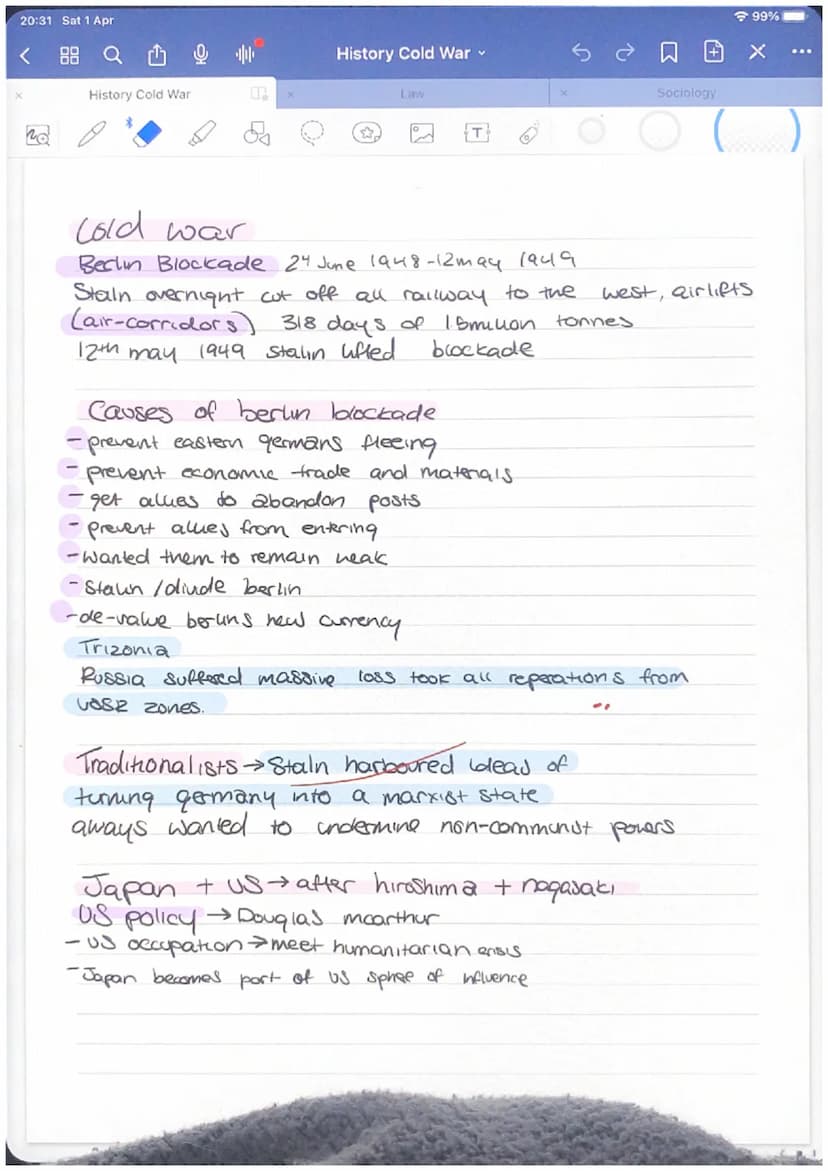 20:31 Sat 1 Apr
99%
History Cold War
History Cold War
Law
Sociology
T
Cold war
Berlin Blockade 24 June 1948-12may 1949
Staln overnight cut off all railway to the west, airlifts
(air-corridors) 318 days of 1.5million tonnes
12th may 1949 Stalin lifted blockade
Causes of berlin blockade
- prevent eastern germans fleeing
- prevent economic trade and materials
- get allies to abandon posts
- prevent allies from entering
- wanted them to remain weak
- Stalin /divide berlin
- de-value berlins new currency
Trizonia
Russia suffered massive loss took all reperations from
USSR zones.
Traditionalists → Staln harboured ideas of
turning germany into a marxist state
always wanted to undermine non-communist powers
Japan + US → after hiroshima + nagasaki
US policy → Douglas mcarthur
- US occupation → meet humanitarian crisis
- Japan becomes part of US sphere of influence